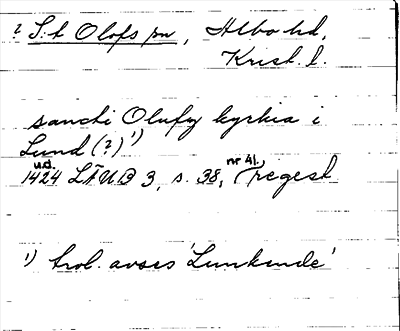 ? S:t Olofs sn, Albo hd,
Krist. l.
sancti Olufs kyrkia i
Lund (?) 1)
u.d.
1424 LÄUB 3, s. 38, nr 41, regest
1) trol. avses 'Lunkende'